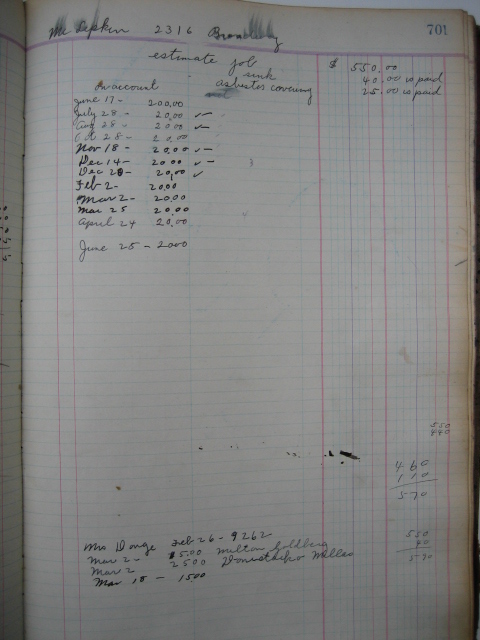 Mr Depkin 2316 701
estimate job $ 550.00
sink 40.00 is paid
On account asbestos covering 25.00 is paid
June 17 - 200.00
July 28 - 20.00 ✓ -
Aug 28 - 20.00 ✓ -
Oct 28 - 20.00
Nov 18 - 20.00 ✓ -
Dec 14 - 20.00 ✓ -
Dec 28 - 20.00 ✓
Feb 2 - 20.00
Mar 2 - 20.00
Mar 25 20.00
April 24 20.00
June 25 - 2000
550
440
460
110
570
Mrs Feb 26 - 9262 550
Mar 2 - 1500 Milton Goldberg
Mar 2 2500
Mar 15 - 1500